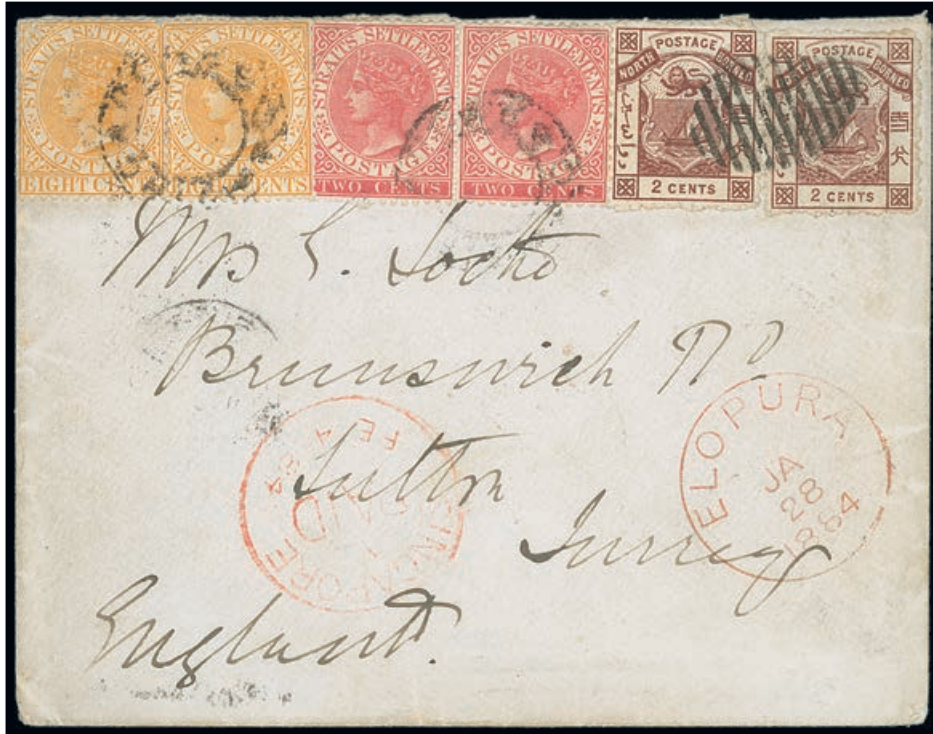 STRAITS SETTLEMENTS
POSTAGE
EIGHT CENTS
STRAITS SETTLEMENTS
POSTAGE
EIGHT CENTS
STRAITS SETTLEMENTS
POSTAGE
TWO CENTS
STRAITS SETTLEMENTS
POSTAGE
TWO CENTS
POSTAGE
NORTH BORNEO
2 CENTS
POSTAGE
NORTH BORNEO
2 CENTS
Mrs
Brunswick Rd
Sutton
Surrey
England.
SINGAPORE
PAID
FE 4
ELOPURA
JA
28
1884